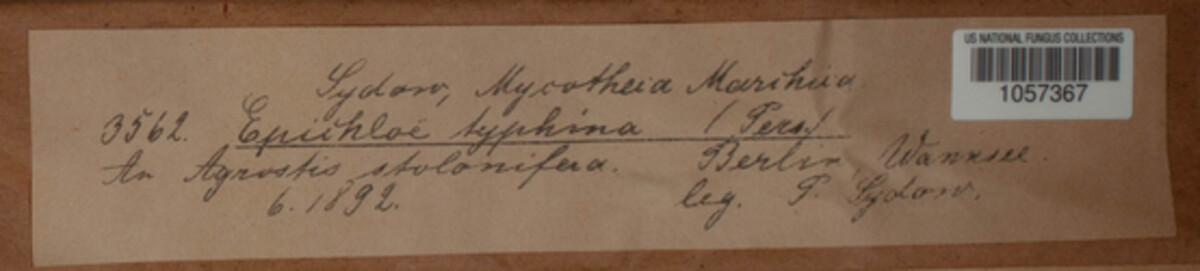 Sydow, Mycotheca Marchica
3562. Epichloë typhina (Pers.)
An Agrostis stolonifera. Berlin, Wannsee.
6. 1892. leg. P. Sydow.
US NATIONAL FUNGUS COLLECTIONS
1057367